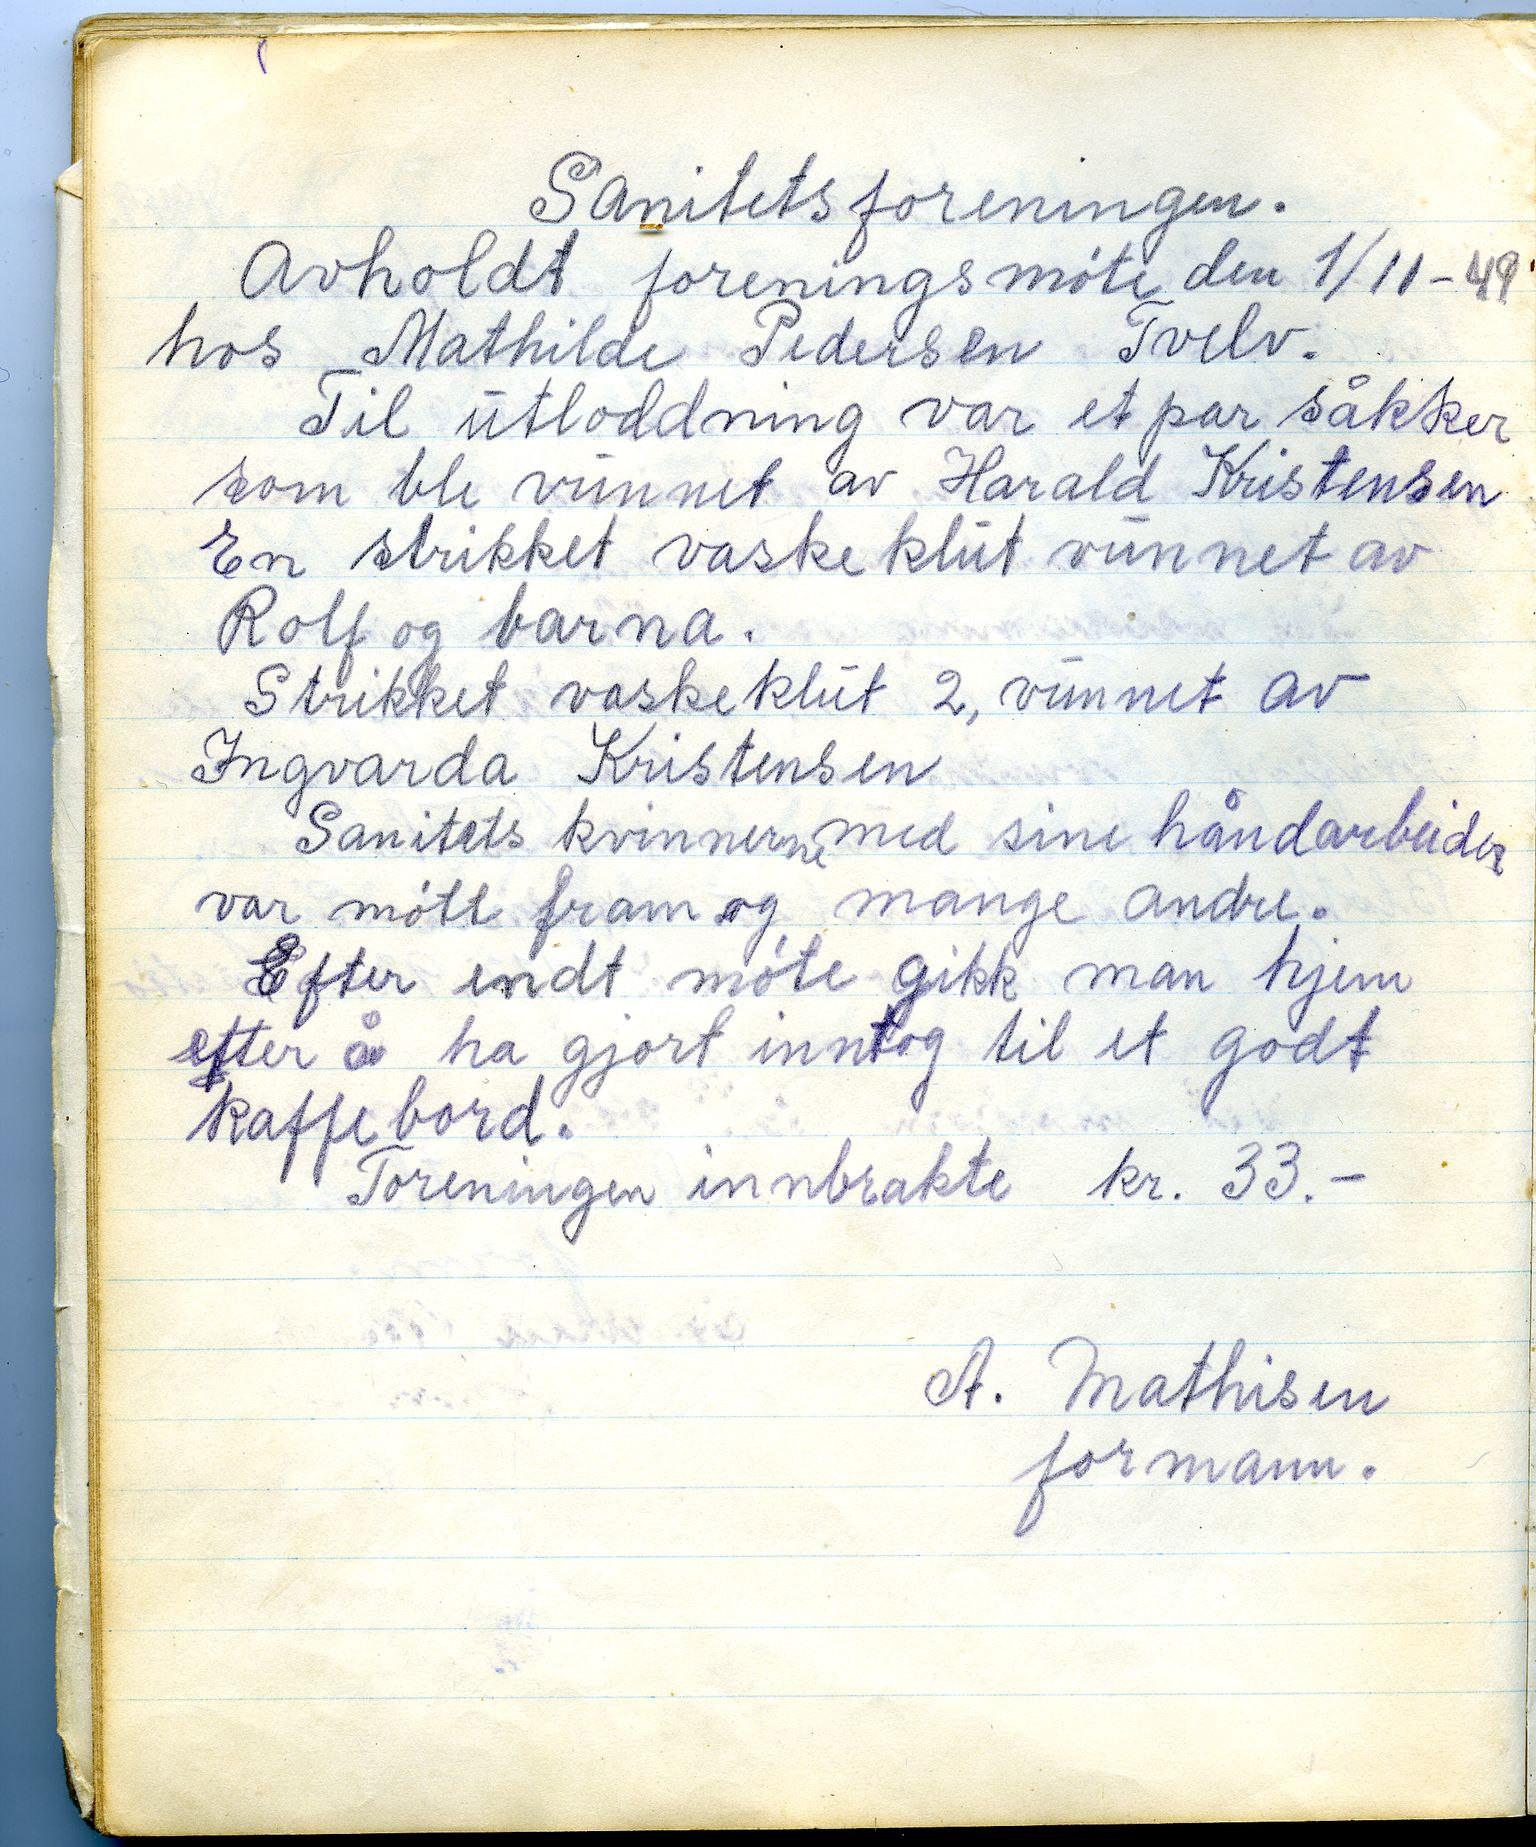 Sanitetsforeningen.
Avholdt foreningsmöte den 1/11-49
hos Mathilde Pedersen Tvelv.
Til utloddning var et par såkker
som ble vunnet av Harald Kristensen
En strikket vaskeklut vunnet av
Rolf og barna.
Strikket vaskeklut 2, vunnet av
Ingvarda Kristensen
Sanitets kvinnerne med sine håndarbeider
var mött fram og mange andre.
Efter endt möte gikk man hjem
efter å ha gjort inntog til et godt
kaffebord.
Foreningen innbrakte kr. 33.-
A. Mathisen
formann.